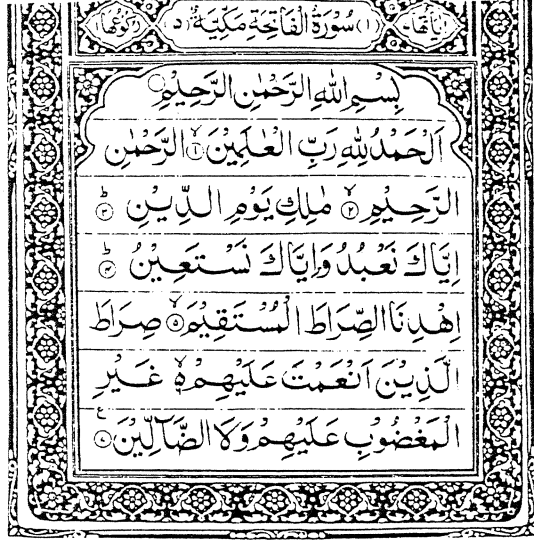 اٰيَاتُهَا ٧ (١) سُوْرَةُ الْفَاتِحَةِ مَكِّيَّةٌ (٥) رُكُوْعُهَا ١
بِسْمِ اللهِ الرَّحْمٰنِ الرَّحِيْمِ
اَلْحَمْدُ لِلّٰهِ رَبِّ الْعٰلَمِيْنَ ۙ﴿١﴾ الرَّحْمٰنِ
الرَّحِيْمِ ۙ﴿٢﴾ مٰلِكِ يَوْمِ الدِّيْنِ ؕ﴿٣﴾
اِيَّاكَ نَعْبُدُ وَاِيَّاكَ نَسْتَعِيْنُ ؕ﴿٤﴾
اِهْدِنَا الصِّرَاطَ الْمُسْتَقِيْمَ ۙ﴿٥﴾ صِرَاطَ
الَّذِيْنَ اَنْعَمْتَ عَلَيْهِمْ ۙ۬ غَيْرِ
الْمَغْضُوْبِ عَلَيْهِمْ وَلَا الضَّآلِّيْنَ ﴿٧﴾